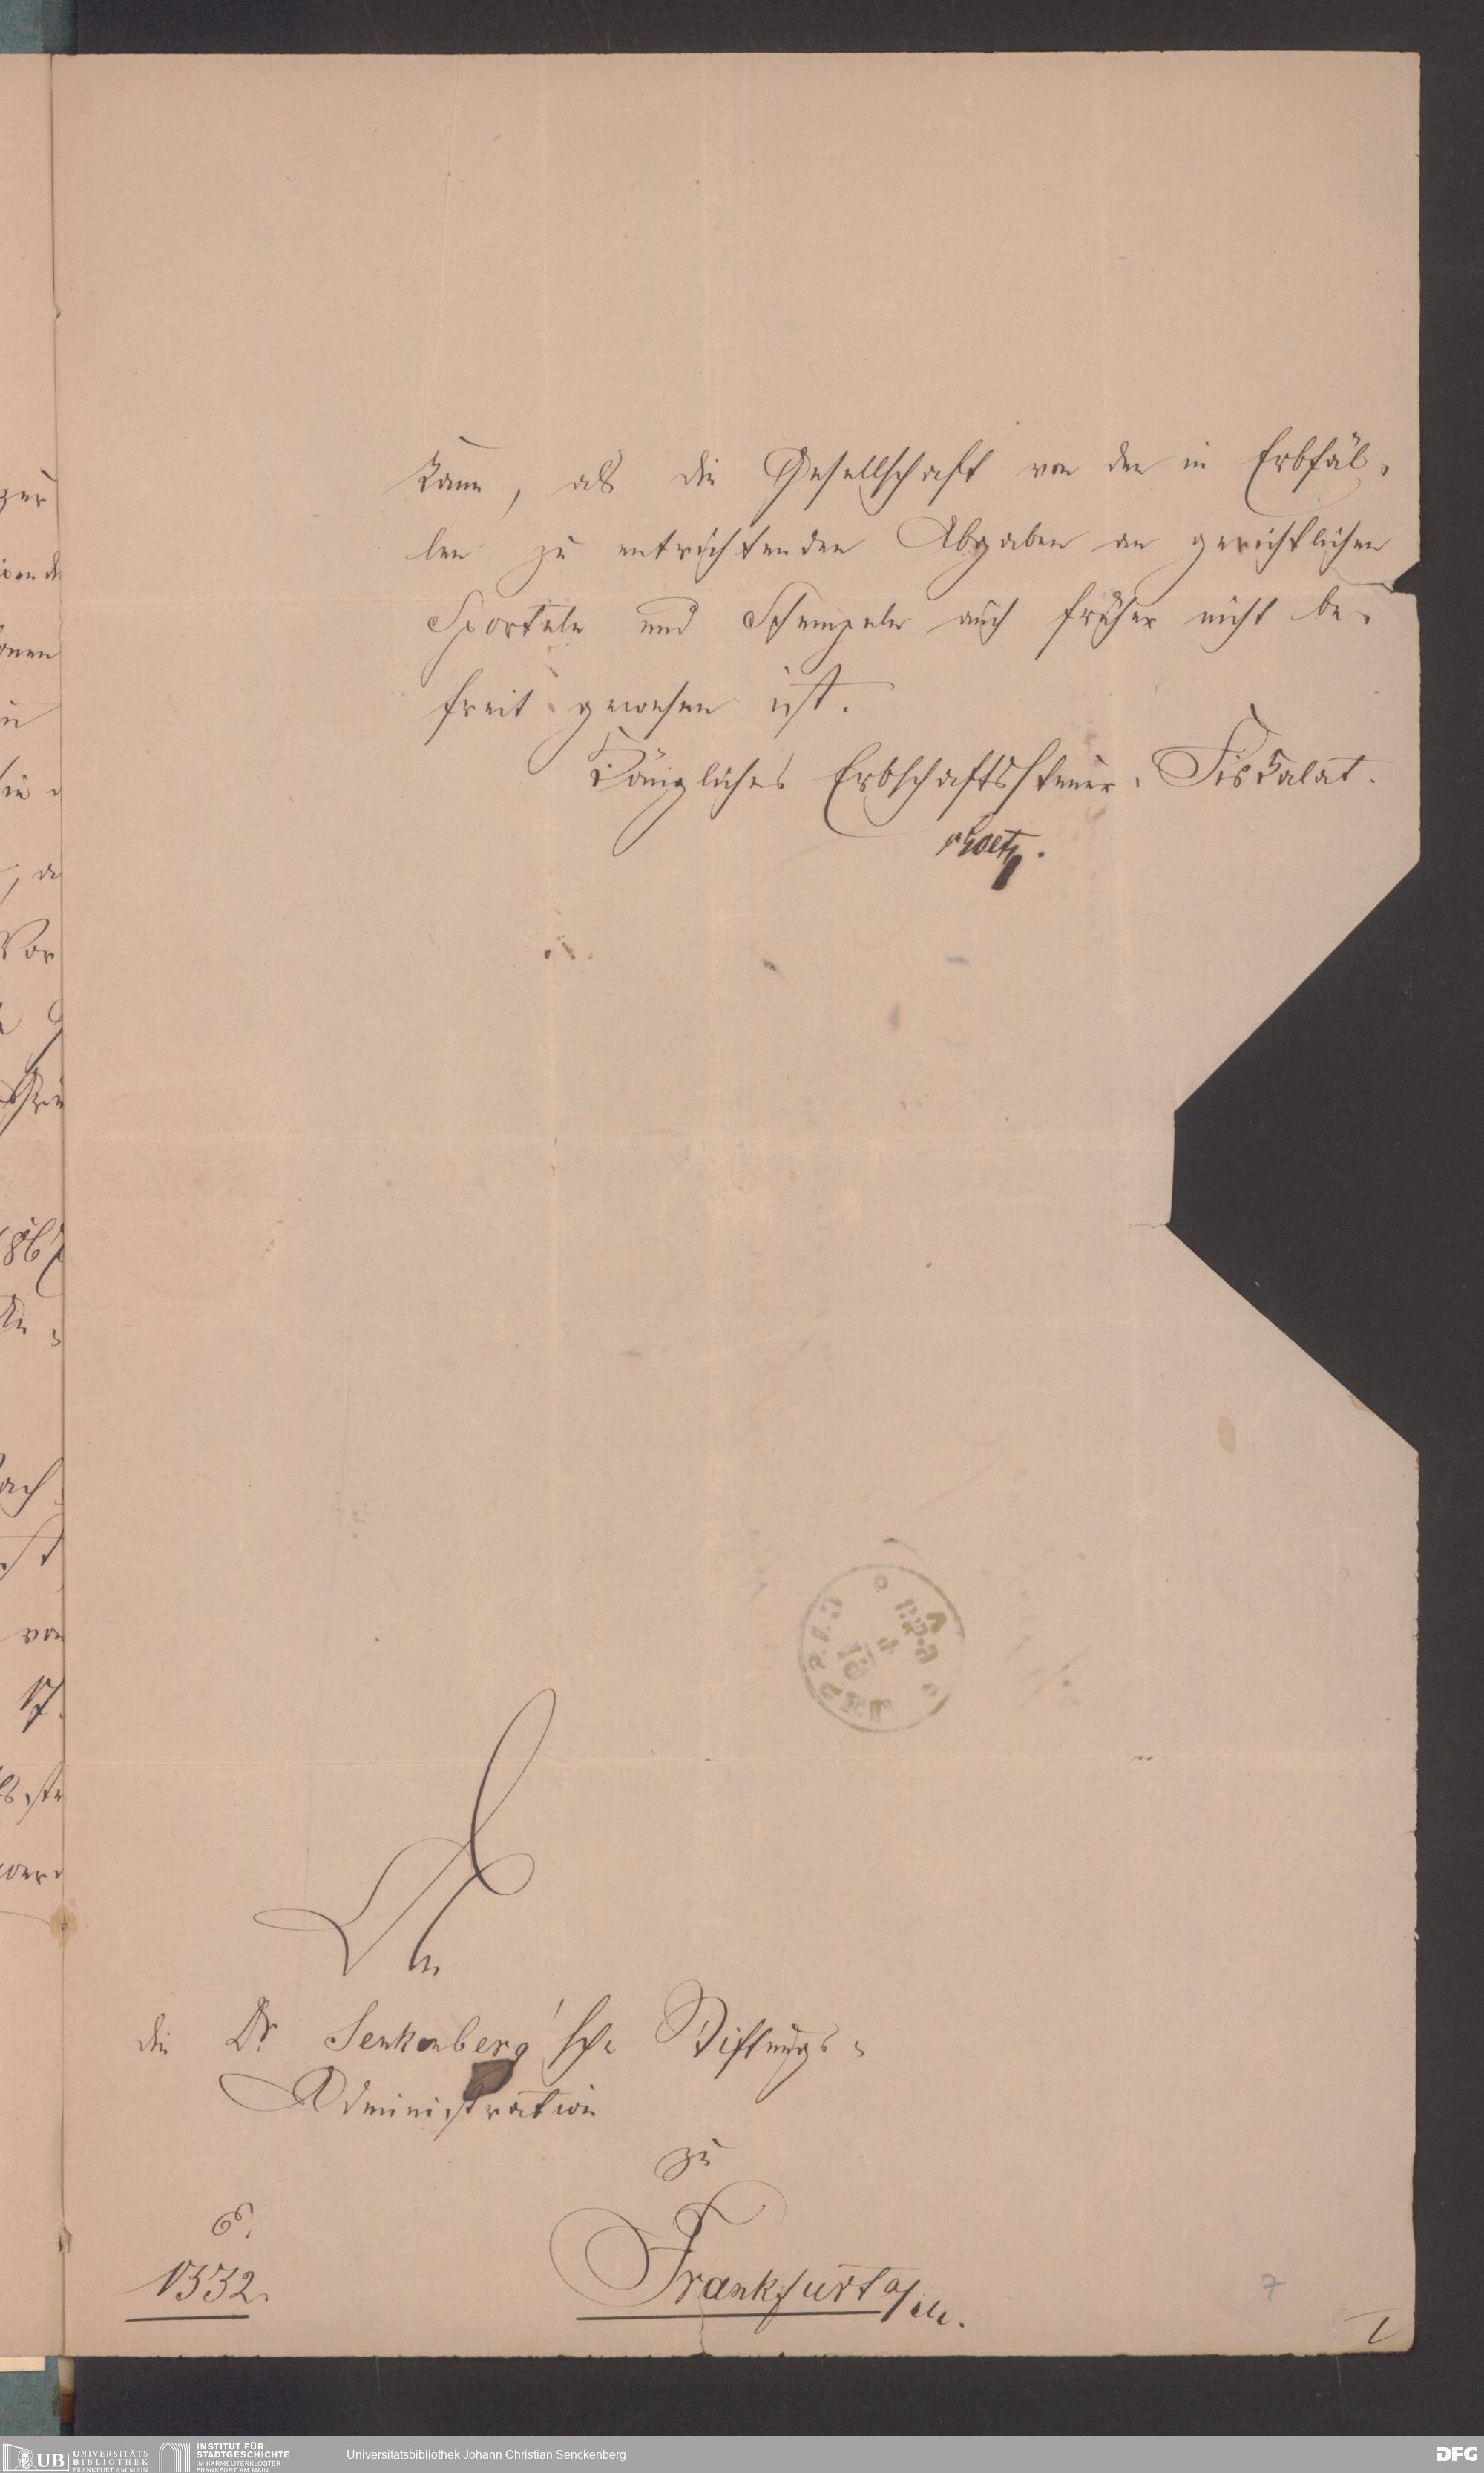 kann, als die Gesellschaft von den in Erbfäl-
len zu entrichtenden Abgaben an gerichtlichen
Sporteln und Stempeln auch früher nicht be-
freit gewesen ist.
Königliches Erbschaftssteuer-Fiskalat.
An
die Dr Senkenberg'sche Stiftungs-
Administration
zu
1332.
Frankfurt a/M.
7
UB UNIVERSITÄTS
BIBLIOTHEK
FRANKFURT AM MAIN
INSTITUT FÜR
STADTGESCHICHTE
IM KARMELITERKLOSTER
FRANKFURT AM MAIN
Universitätsbibliothek Johann Christian Senckenberg
DFG